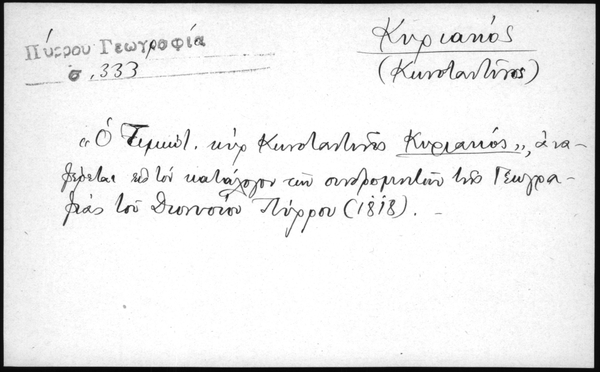 Πύρρου Γεωγραφία
σ. 333
Κυριακός
(Κωνσταντῖνος)
«Ὁ Τιμιώτ. κὺρ Κωνσταντῖνος Κυριακός», ἀνα-
φέρεται εἰς τὸν κατάλογον τῶν συνδρομητῶν τῆς Γεωγρα-
φίας τοῦ Διονυσίου Πύρρου (1818). –